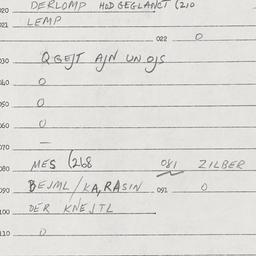 020 DERLOMP HOD GEGLANCT (210
021 LEMP
022 0
030 Q GEJT AJN UN OJS
040 0
050 0
060 0
070 —
080 MES (268 081 ZILBER
090 BEJML / KA, RASIN 091 0
100 DER KNEJTL
110 0